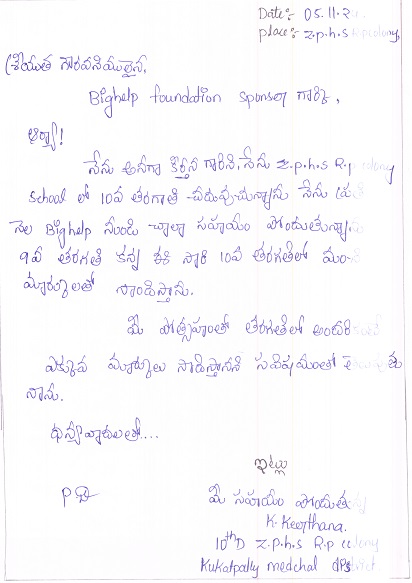 Date:- 05.11.2
place:- z.p.h.s R.p colony,
శ్రీయుత గౌరవనీయులైన,
Bighelp foundation sponsor గార్కి,
ఆర్యా!
నేను అనగా కీర్తన గారిని, నేను z.p.h.s R.p colony
school లో 10వ తరగతి చదువుచున్నాను నేను ప్రతి
నెల Bighelp నుండి చాలా సహాయం పొందుతున్నాను
9వ తరగతి కన్న ఈ సారి 10వ తరగతిలో మంచి
మార్కులతో సాధిస్తాను.
మీ ప్రోత్సహంతో తరగతిలో అందరి
ఎక్కువ మార్కులు సాధిస్తానని సవినయంతో
నాను.
ధన్యవాదులతో....
ఇట్లు
మీ సహాయం పొందుతున్న
K. Keerthana.
10thD z.p.h.s R.p colony
Kukatpally medchal district.